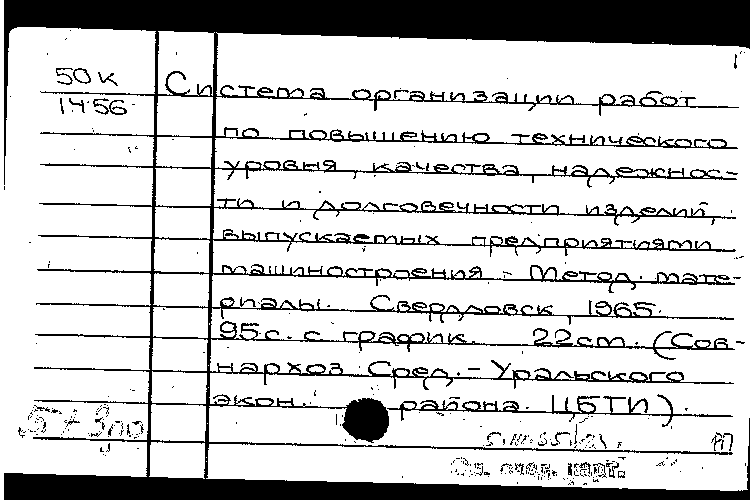 50к
1456
Система организации работ
по повышению технического
уровня, качества, надежнос-
ти и долговечности изделий,
выпускаемых предприятиями
машиностроения - Метод. мате-
риалы. Свердловск, 1965.
95с. с график. 22см. (Сов-
нархоз Сред.-Уральского
экон. района. ЦБТИ).